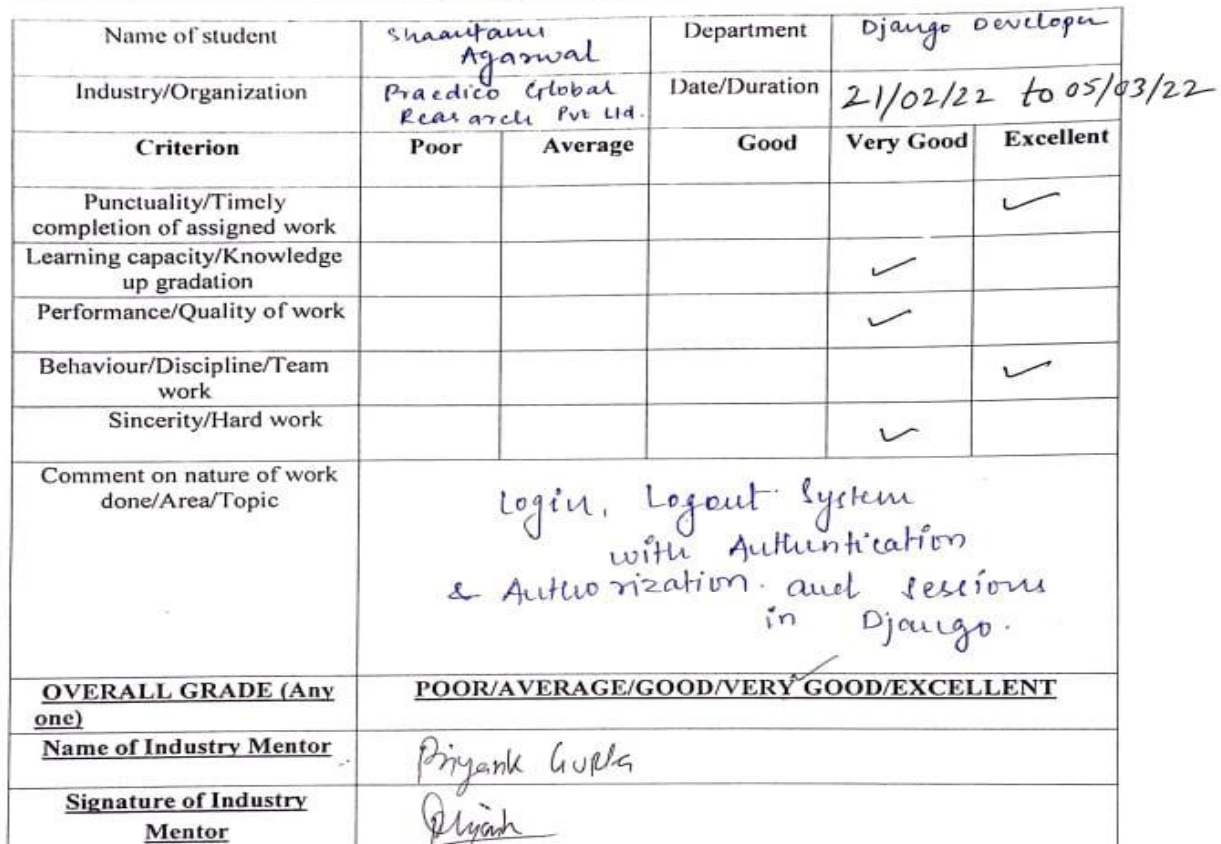 Name of student Shaantanu Department Django Developer
Agarwal
Industry/Organization Praedico Global Date/Duration 21/02/22 to 05/03/22
Research Pvt Ltd.
Criterion Poor Average Good Very Good Excellent
Punctuality/Timely
completion of assigned work ✓
Learning capacity/Knowledge
up gradation ✓
Performance/Quality of work ✓
Behaviour/Discipline/Team
work ✓
Sincerity/Hard work ✓
Comment on nature of work
done/Area/Topic
Login, Logout System
with Authentication
& Authorization. and sessions
in Django.
OVERALL GRADE (Any
one)
POOR/AVERAGE/GOOD/VERY GOOD/EXCELLENT
Name of Industry Mentor Priyank Gupta
Signature of Industry
Mentor